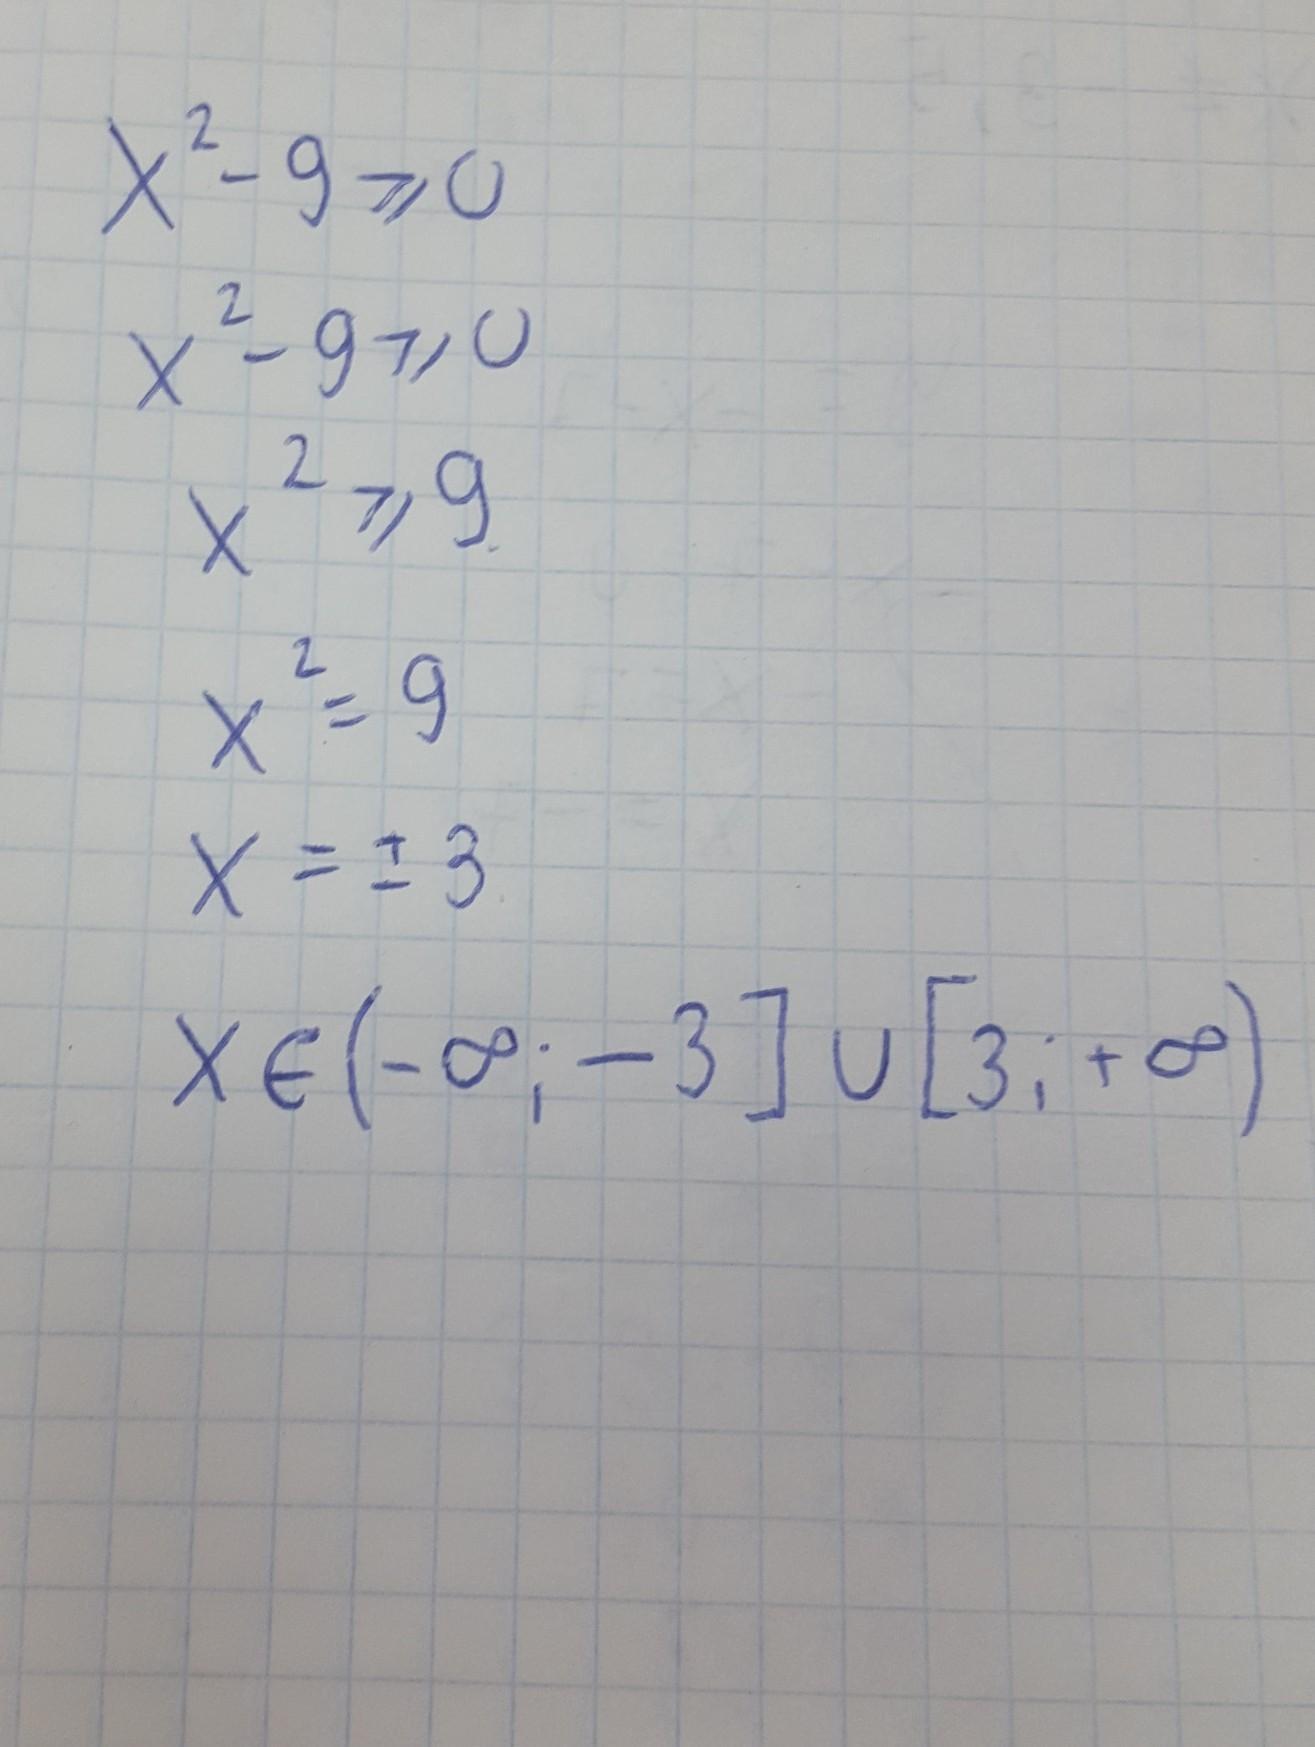 x² - 9 ⩾ 0
x² - 9 ⩾ 0
x² ⩾ 9
x² = 9
x = ± 3
x ∈ (-∞; -3] ∪ [3; +∞)